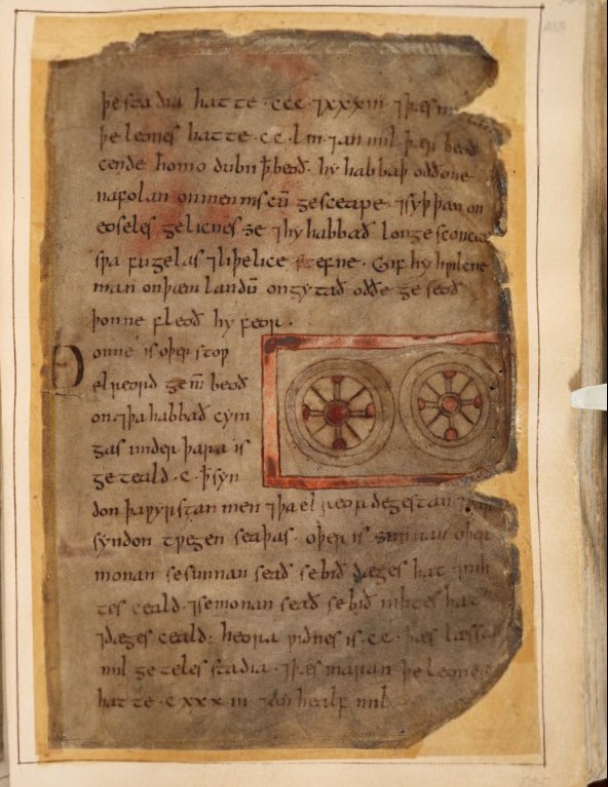 þe stadia hatte · ccc · ⁊ xxxiii · ⁊ þæs
þe leones hatte · cc · l iii ⁊ an mil · þær beoð
cende homo dubii ꝥ beoð · hy habbaþ oððone
nafolan on menniscū gesceape · ⁊ syþþan on
eoseles gelicnesse ⁊ hy habbað longe sconcan
sƿa fugelas ⁊ liþelice stefne · Gif hy hƿilcne
man on þæm landū ongytað oððe geseoð
þonne fleoð hy feor ·
Ðonne is oþer stoƿ
elreord gem̄ beoð
on ⁊ þa habbað cyni
gas under þara is
geteald · c · ꝥ syn
don þa ƿyrstan men ⁊ þa elreordegestan ⁊
syndon tƿegen seaþas · oþer is sunnan oþer
monan se sunnan seað se bið dæges hat ⁊ nih
tes ceald · ⁊ se monan seað se bið nihtes hat
⁊ dæges ceald: heora ƿidnes is · cc · þæs læssa
mil geteles stadia · ⁊ þæs maran þe leones
hatte · cxxxiii ⁊ healf mil